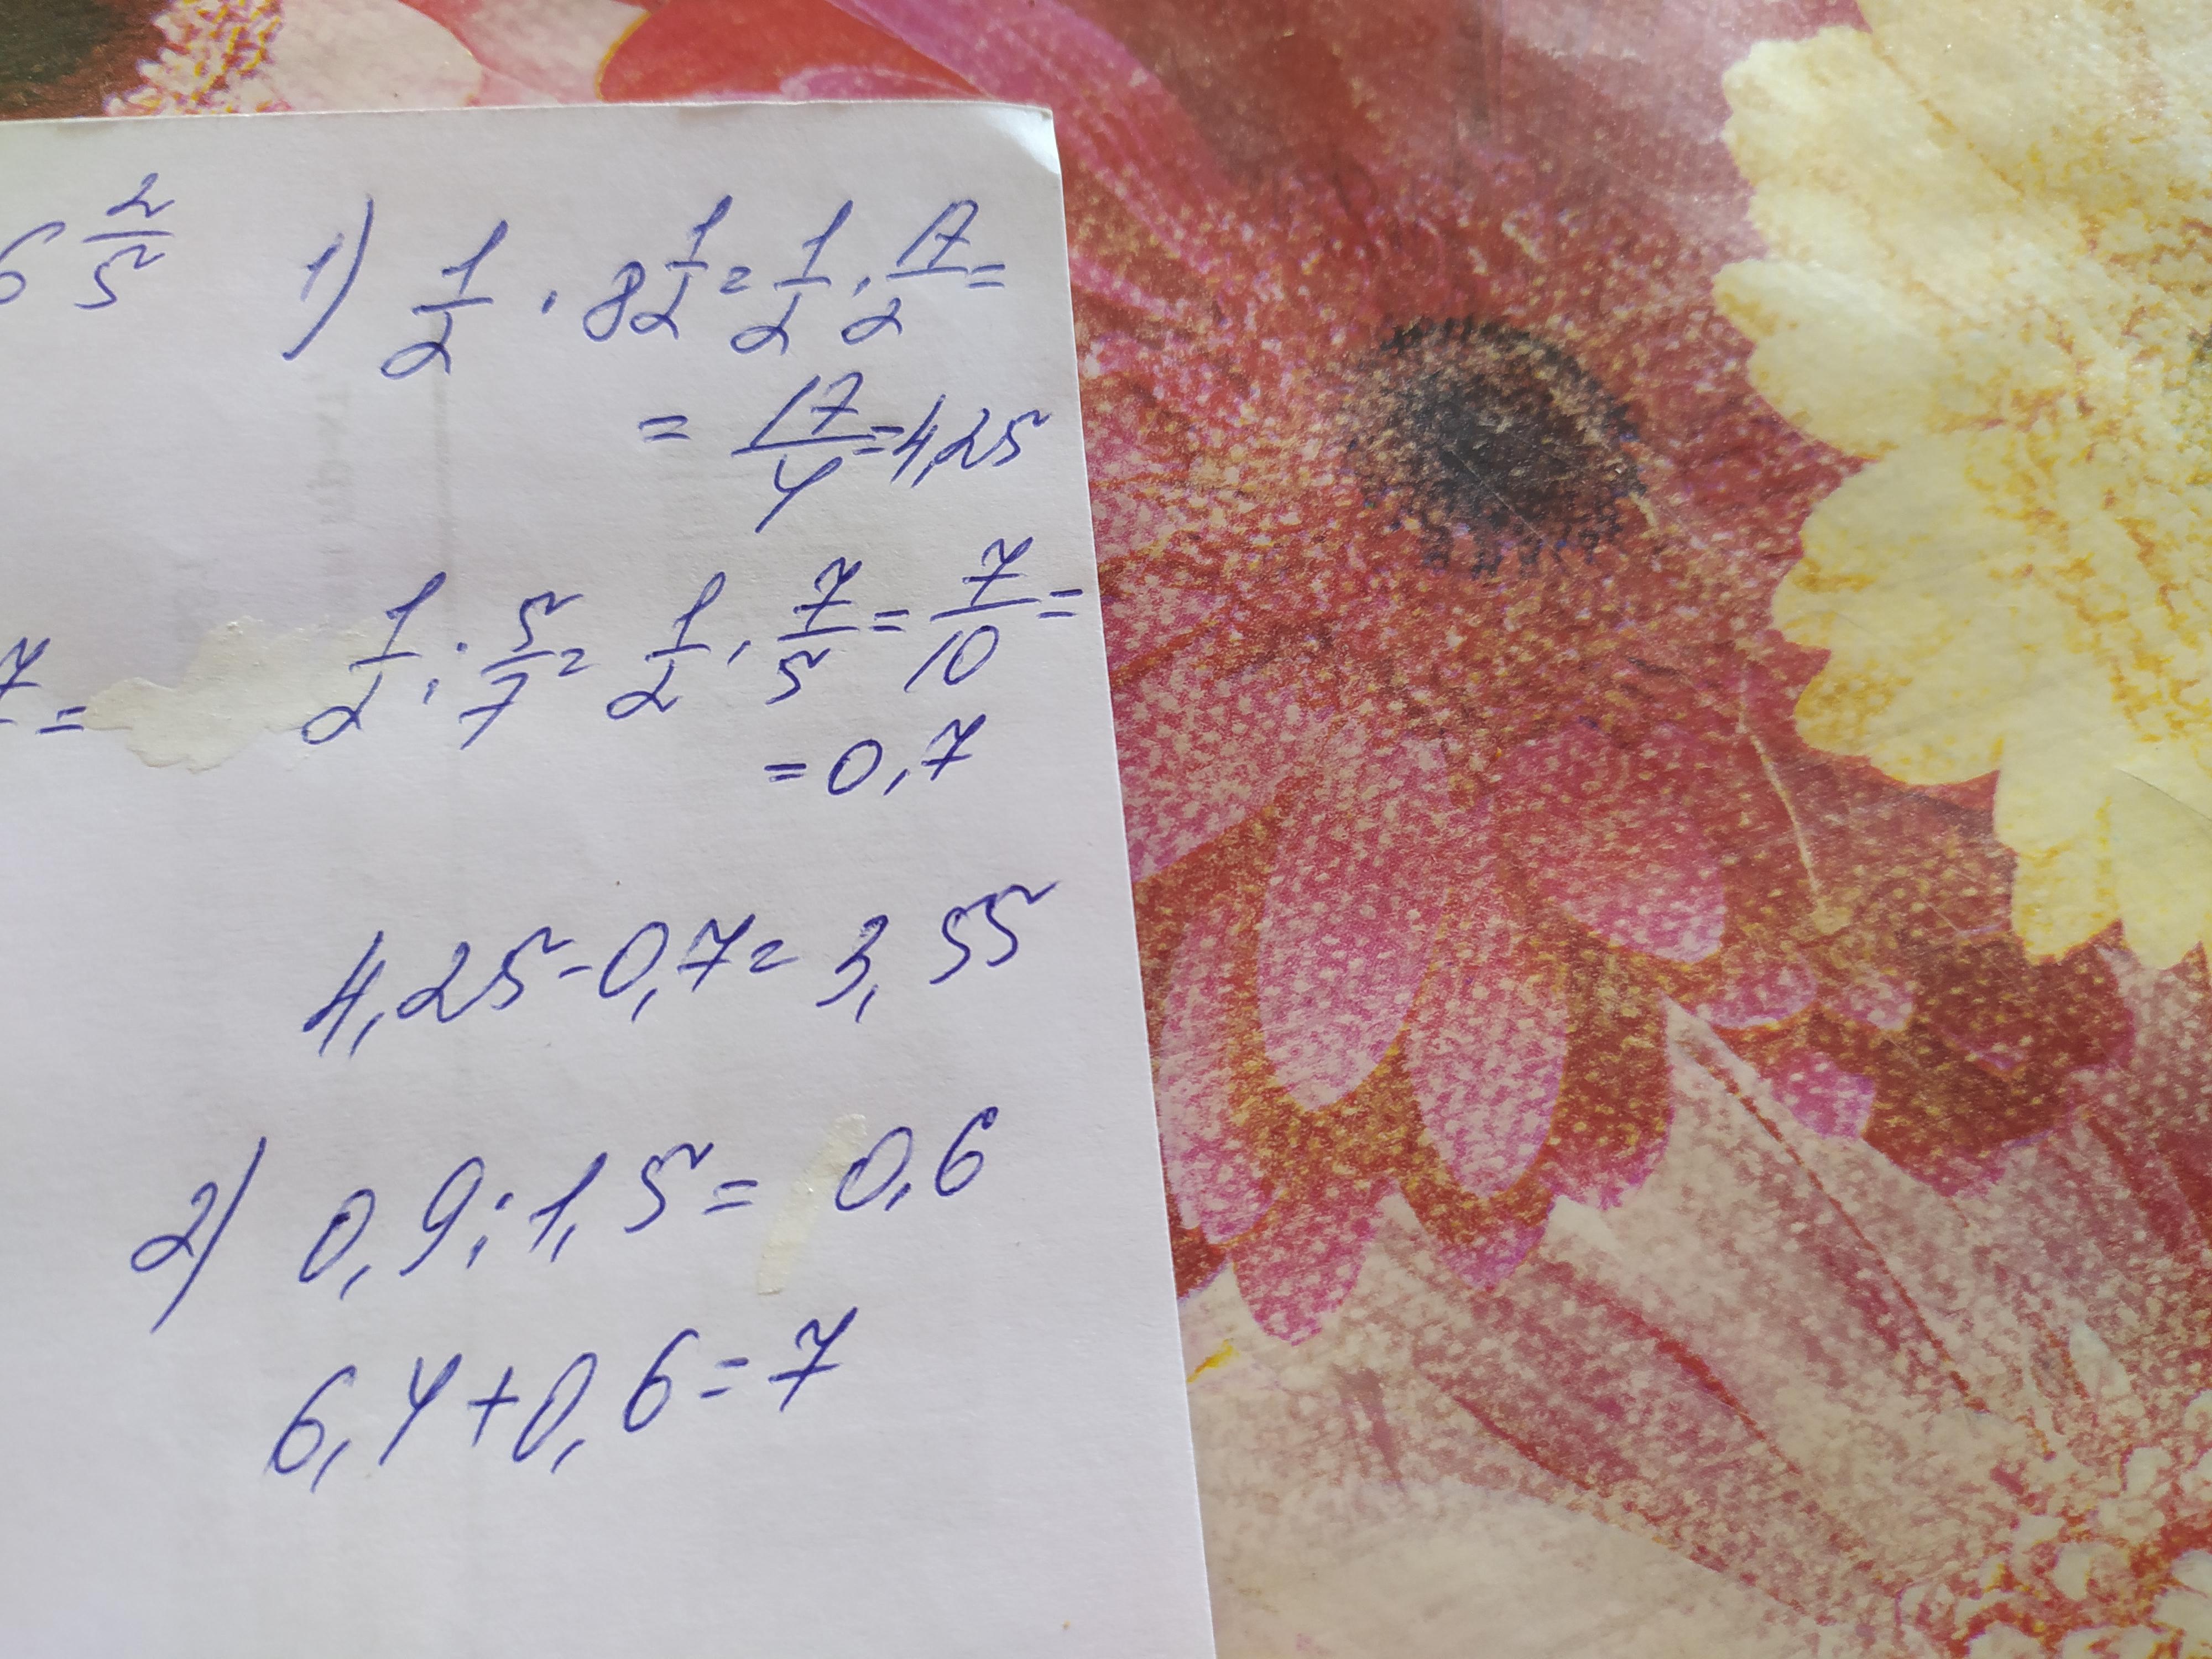 6 2/5
1) 1/2 · 8 1/2 = 1/2 · 17/2 =
= 17/4 = 4,25
7 =
1/2 : 5/7 = 1/2 · 7/5 = 7/10 =
= 0,7
4,25 - 0,7 = 3,55
2) 0,9 : 1,5 = 0,6
6,4 + 0,6 = 7